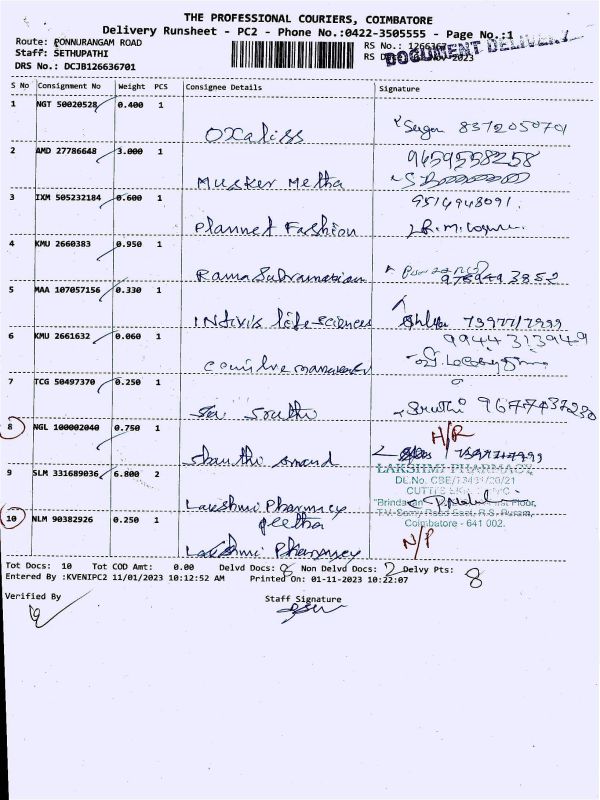 THE PROFESSIONAL COURIERS, COIMBATORE
Delivery Runsheet - PC2 - Phone No.:0422-3505555 - Page No.:1
Route: PONNURANGAM ROAD
RS No.: 1266367
Staff: SETHUPATHI
RS Nov-2023
DOCUMENT DELIVERY
DRS No.: DCJB126636701
S No Consignment No Weight PCS Consignee Details Signature
1 NGT 50020528 0.400 1
Oxaliss 8372050701
2 AMD 27786648 3.000 1 9659558258
Musker Metha
3 IXM 505232184 0.600 1 9514948091
Plannet Fashion
4 KMU 2660383 0.950 1
Rama Subramanian
5 MAA 107057156 0.330 1
Intivis life-sciences
6 KMU 2661632 0.060 1 9944313949
7 TCG 50497370 0.250 1
Sai Sruthi Sruthi 9677437230
8 NGL 100002040 0.750 1 H/R
Shanthi Anand
9 SLM 331689036 6.800 2 LAKSHMI PHARMACY
Lakshmi Pharmacy
Geetha
Coimbatore - 641 002.
10 NLM 90382926 0.250 1 N/P
Lakshmi Pharmacy
Tot Docs: 10 Tot COD Amt: 0.00 Delvd Docs: 8 Non Delvd Docs: 2 Delvy Pts: 8
Entered By :KVENIPC2 11/01/2023 10:12:52 AM Printed On: 01-11-2023 10:22:07
Verified By Staff Signature